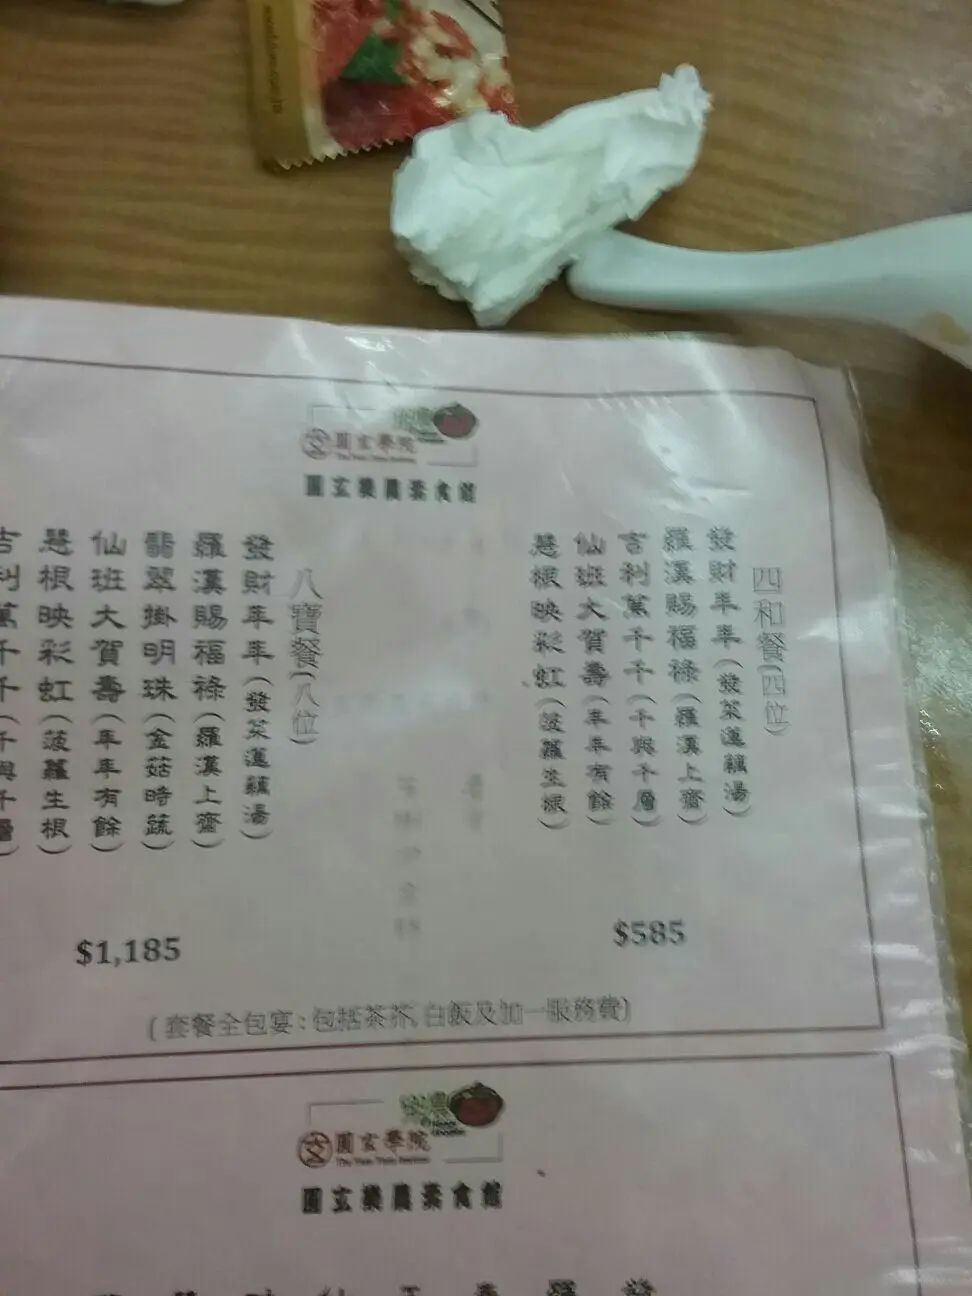 圓玄學院
圓玄樂農素食館
四和餐(四位)
發財年年(發菜蓮藕湯)
羅漢賜福祿(羅漢上齋)
吉利萬千千(千與千層)
仙班大賀壽(年年有餘)
慧根映彩虹(菠蘿生根)
$585
八寶餐(八位)
發財年年(發菜蓮藕湯)
羅漢賜福祿(羅漢上齋)
翡翠掛明珠(金菇時蔬)
仙班大賀壽(年年有餘)
慧根映彩虹(菠蘿生根)
吉利萬千千(千與千層)
$1,185
(套餐全包宴:包括茶芥,白飯及加一服務費)
圓玄學院
圓玄樂農素食館